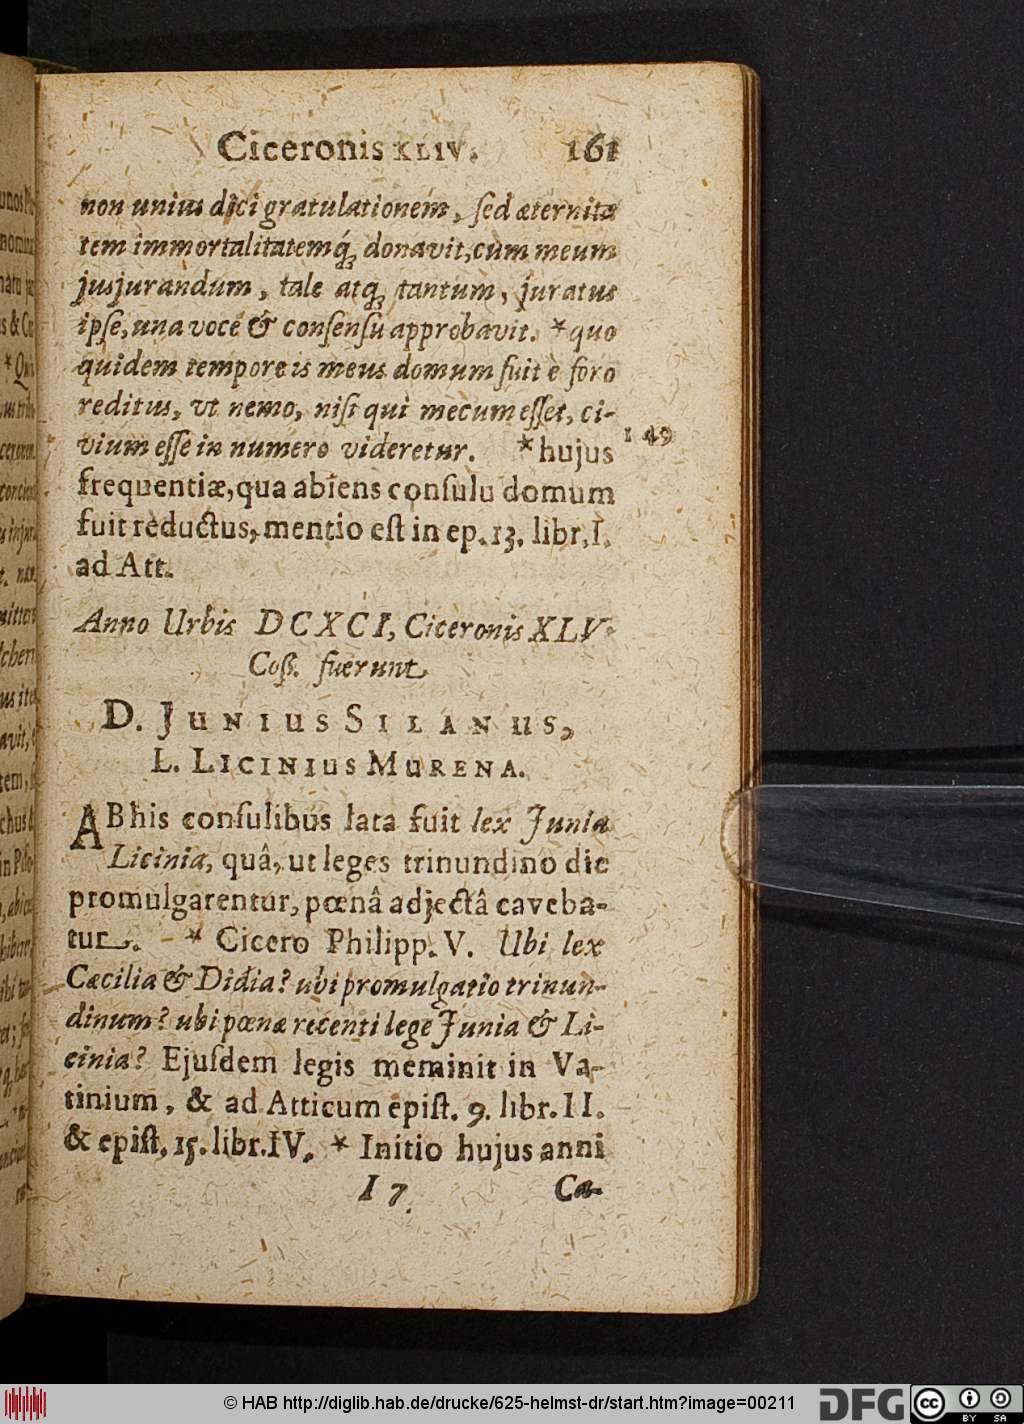 Ciceronis XLIV. 161
non unius diei gratulationem, ſed æternita
tem immortalitatemq́; donavit, cùm meum
jusjurandum, tale atq; tantum, juratus
ipſe, una voce & conſenſu approbavit. * quo
quidem tempore is meus domum fuit è foro
reditus, vt nemo, niſi qui mecum eſſet, ci-
vium eſſe in numero videretur. * hujus 149
frequentiæ, qua abiens conſulu domum
fuit reductus, mentio eſt in ep. 13. libr. I.
ad Att.
Anno Urbis DCXCI, Ciceronis XLV.
Coſſ. fuerunt
D. JUNIUS SILANUS,
L. LICINIUS MURENA.
AB his conſulibus lata fuit lex Junia
Licinia, quâ, ut leges trinundino die
promulgarentur, pœnâ adjectâ caveba-
tur. * Cicero Philipp. V. Ubi lex
Cæcilia & Didia? ubi promulgatio trinun-
dinum? ubi pœna recenti lege Junia & Li-
cinia? Ejuſdem legis meminit in Va-
tinium, & ad Atticum epiſt. 9. libr. II.
& epiſt. 15. libr. IV. * Initio hujus anni
I 7 Ca-
© HAB http://diglib.hab.de/drucke/625-helmst-dr/start.htm?image=00211
DFG
cc
BY SA